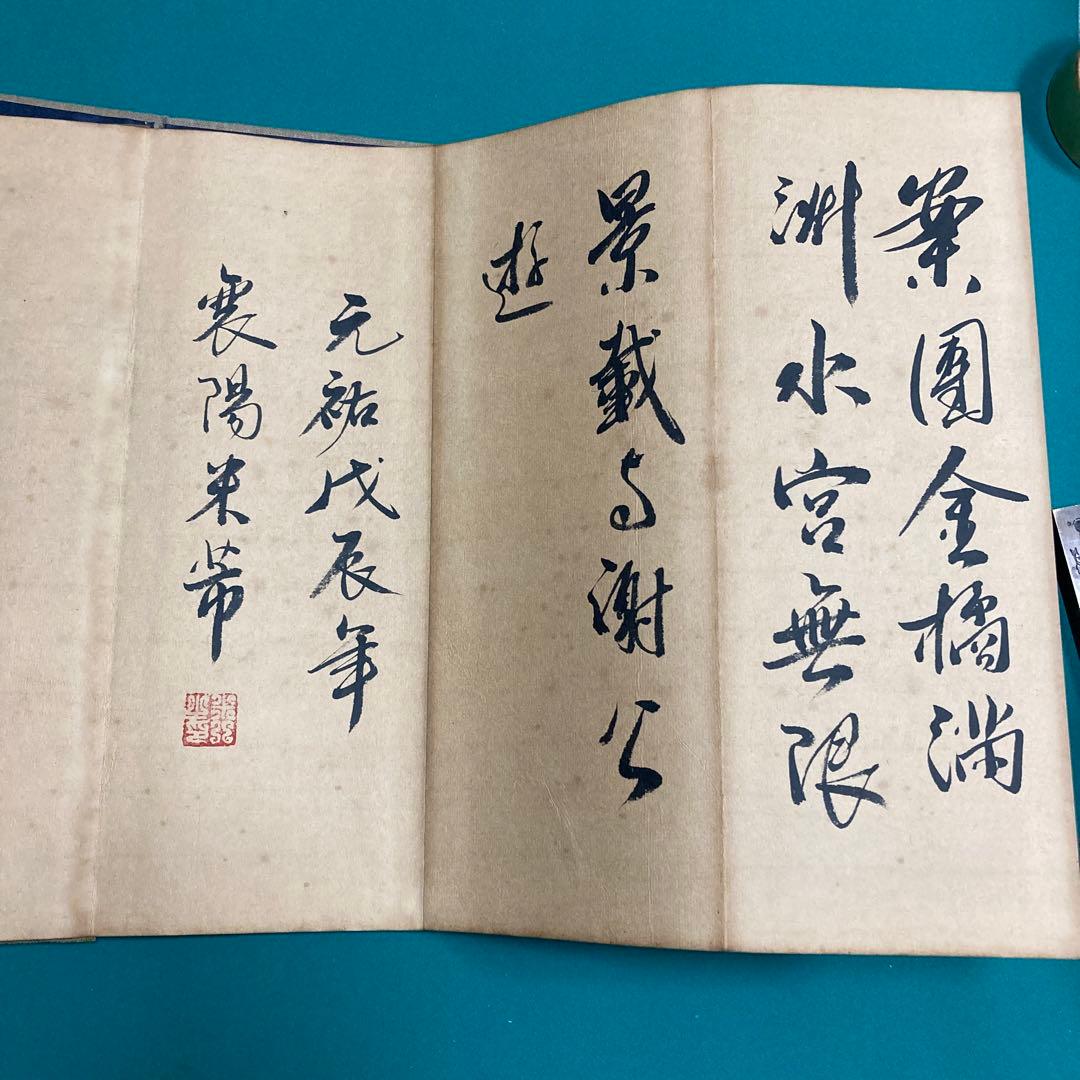 案團金橘滿
洲水宮無限
景載与謝公
遊
元祐戊辰年
襄陽米芾